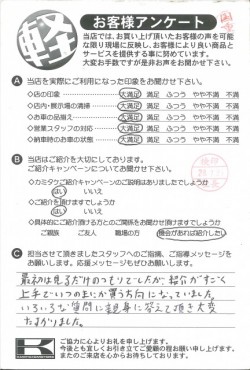 軽
お客様アンケート
当店では、お買い上げ頂いたお客様の声を可能
な限り現場に反映し、お客様により良い商品と
サービスを提供する事に努めています。
大変お手数ですが是非お声をお聞かせ下さい。
A 当店を実際にご利用になった印象をお聞かせ下さい。
◇店の印象 大満足 満足 ふつう やや不満 不満
◇店内・展示場の清掃 大満足 満足 ふつう やや不満 不満
◇お車の品揃え 大満足 満足 ふつう やや不満 不満
◇営業スタッフの対応 大満足 満足 ふつう やや不満 不満
◇納車時のお車の状態 大満足 満足 ふつう やや不満 不満
B 当店はご紹介を大切にしております。
ご紹介キャンペーンについてお聞かせ下さい。
◇カミタケご紹介キャンペーンのご説明はありましたでしょうか
はい いいえ
◇ご紹介を頂けますでしょうか
はい いいえ
◇具体的にご紹介頂ける方とのご関係をお聞かせ頂けますでしょうか
ご親族 ご友人 職場の方 機会があれば紹介したい
C 担当させて頂きましたスタッフへのご指摘、ご指導メッセージを
お願いします。応援メッセージもぜひお願いします。
最初は見るだけのつもりでしたが、紹介がすごく
上手でいつのまにか買う方向になっていました。
いろいろな質問に親身に答えて頂き大変
たすかりました。
K
ご協力に心よりお礼を申し上げます。
今後とも宜しくお引き立てご愛顧の程お願い申し上げます。
またのご来店を心からお待ちしております。